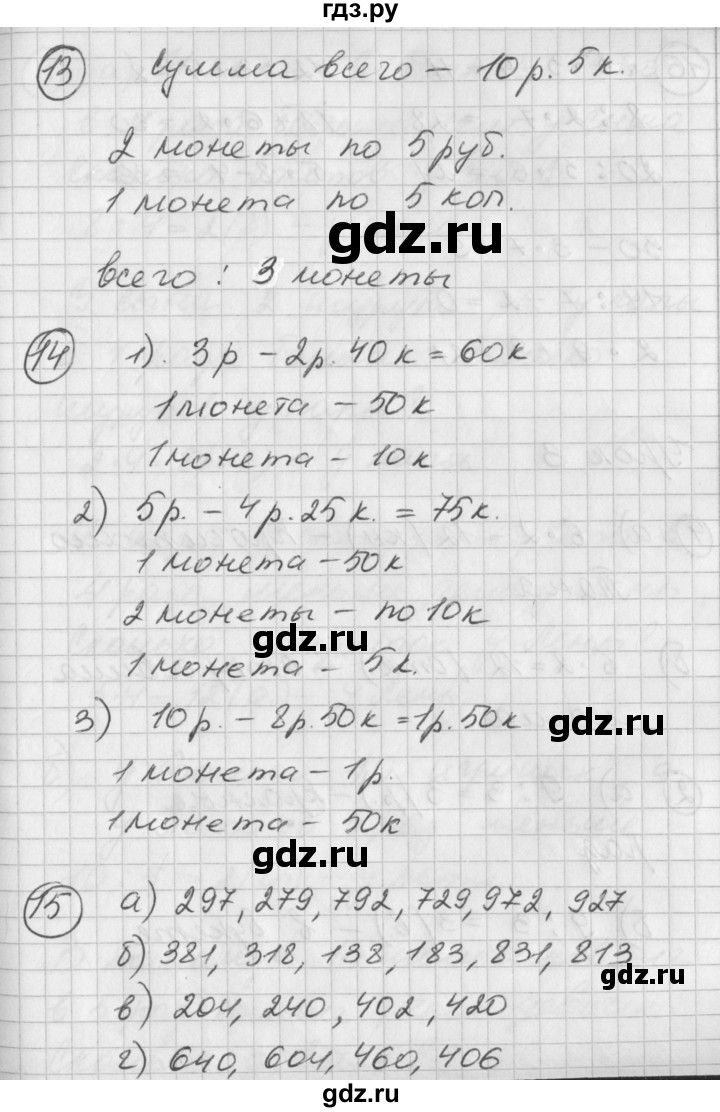 гдз.ру
13 Сумма всего – 10 р. 5 к.
2 монеты по 5 руб.
1 монета по 5 коп.
gdz.ru
всего : 3 монеты
14 1). 3 р – 2 р. 40 к = 60 к
1 монета – 50 к
1 монета – 10 к
2) 5 р. – 4 р. 25 к. = 75 к.
1 монета – 50 к
2 монеты – по 10 к
gdz.ru
1 монета – 5 к.
3) 10 р. – 8 р. 50 к = 1 р. 50 к
gdz.ru
1 монета – 1 р.
1 монета – 50 к
gdz.ru
15 а) 297, 279, 792, 729, 972, 927
б) 381, 318, 138, 183, 831, 813
gdz.ru
в) 204, 240, 402, 420
г) 640, 604, 460, 406
gdz.ru